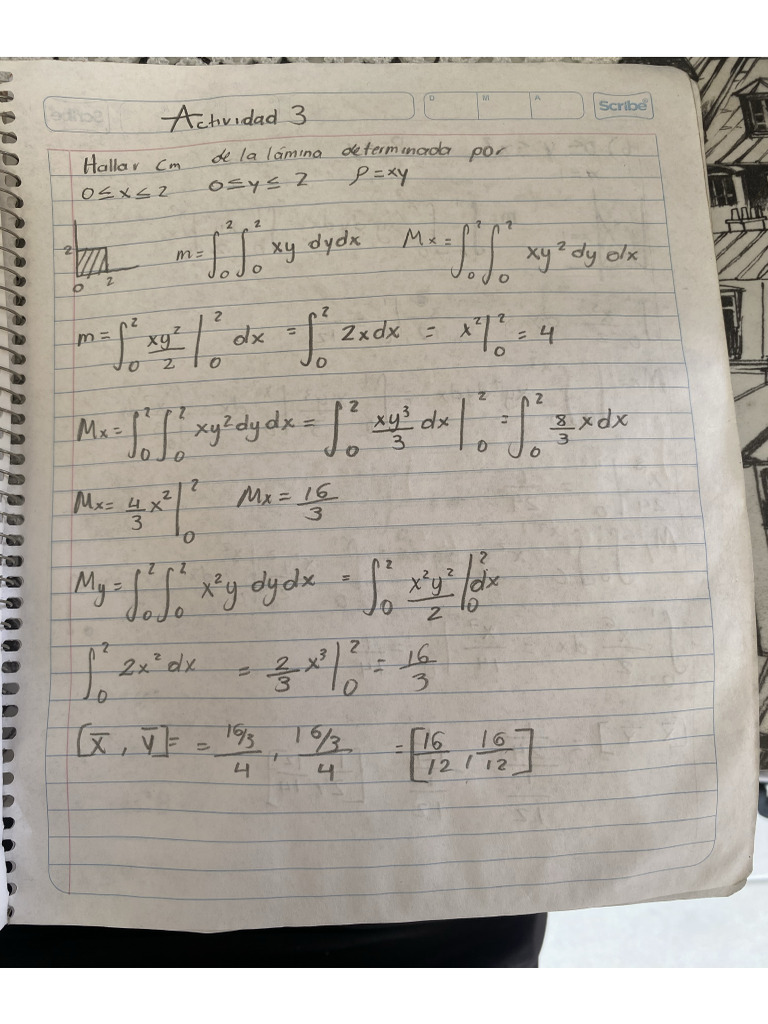 Scribe
D M A
Actividad 3
Hallar cm de la lámina determinada por
0≤x≤2 0≤y≤2 ρ=xy
2
0 2
m=∫₀²∫₀² xy dydx Mx=∫₀²∫₀² xy² dy dx
m=∫₀² xy²/2 |₀² dx = ∫₀² 2xdx = x²|₀² = 4
Mx=∫₀²∫₀² xy²dydx = ∫₀² xy³/3 dx |₀² = ∫₀² 8/3 xdx
Mx= 4/3 x²|₀² Mx= 16/3
My=∫₀²∫₀² x²y dydx = ∫₀² x²y²/2 |₀² dx
∫₀² 2x² dx = 2/3 x³|₀² = 16/3
[x̄, ȳ]= = 16/3/4, 16/3/4 =[16/12, 16/12]